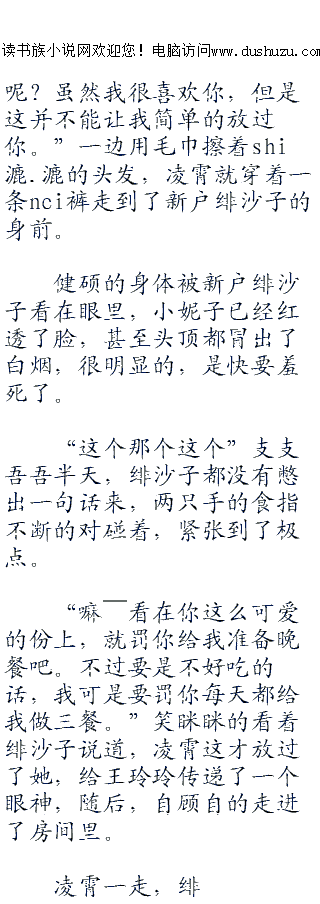 读书族小说网欢迎您！电脑访问www.dushuzu.com
呢？虽然我很喜欢你，但是
这并不能让我简单的放过
你。”一边用毛巾擦着shi
漉.漉的头发，凌霄就穿着一
条nci裤走到了新户绯沙子的
身前。
健硕的身体被新户绯沙
子看在眼里，小妮子已经红
透了脸，甚至头顶都冒出了
白烟，很明显的，是快要羞
死了。
“这个那个这个”支支
吾吾半天，绯沙子都没有憋
出一句话来，两只手的食指
不断的对碰着，紧张到了极
点。
“嘛￣看在你这么可爱
的份上，就罚你给我准备晚
餐吧。不过要是不好吃的
话，我可是要罚你每天都给
我做三餐。”笑眯眯的看着
绯沙子说道，凌霄这才放过
了她，给王玲玲传递了一个
眼神，随后，自顾自的走进
了房间里。
凌霄一走，绯